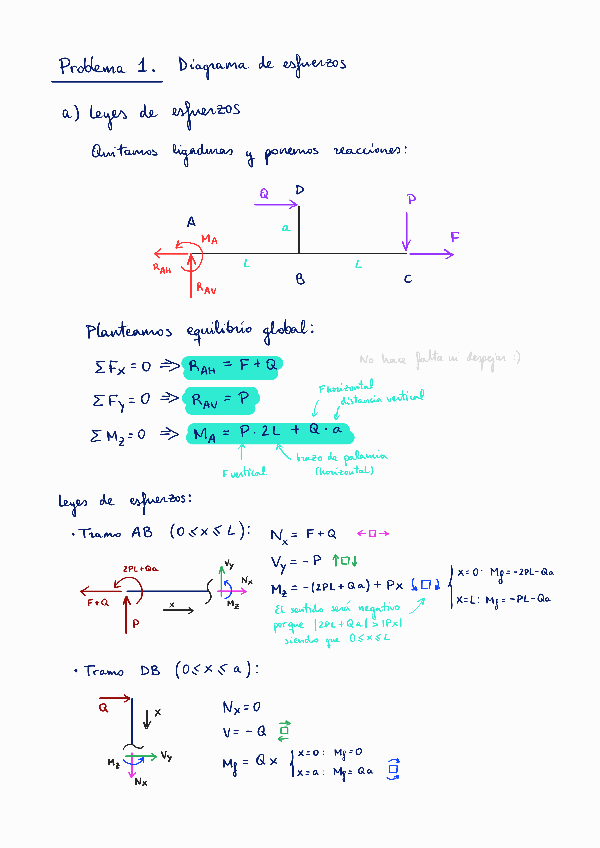 Problema 1. Diagrama de esfuerzos
a) Leyes de esfuerzos
Quitamos ligaduras y ponemos reacciones:
Q D P
A a F
M_A
R_AH L L
R_AV B C
Planteamos equilibrio global:
ΣFx = 0 => R_AH = F + Q
No hace falta ni despejar :)
ΣFy = 0 => R_AV = P
F horizontal
distancia vertical
ΣMz = 0 => M_A = P · 2L + Q · a
F vertical
brazo de palanca
(horizontal)
Leyes de esfuerzos:
• Tramo AB (0 ≤ x ≤ L): Nx = F + Q ←□→
Vy = -P ↑□↓
Mz = -(2PL + Qa) + Px □ { x=0: Mf = -2PL - Qa
x=L: Mf = -PL - Qa
2PL+Qa Vy
F+Q x Nx
Mz
P
El sentido será negativo
porque |2PL + Qa| > |Px|
siendo que 0 ≤ x ≤ L
• Tramo DB (0 ≤ x ≤ a):
Q x
Mz Vy
Nx
Nx = 0
V = -Q □
Mf = Qx { x=0: Mf = 0
x=a: Mf = Qa □